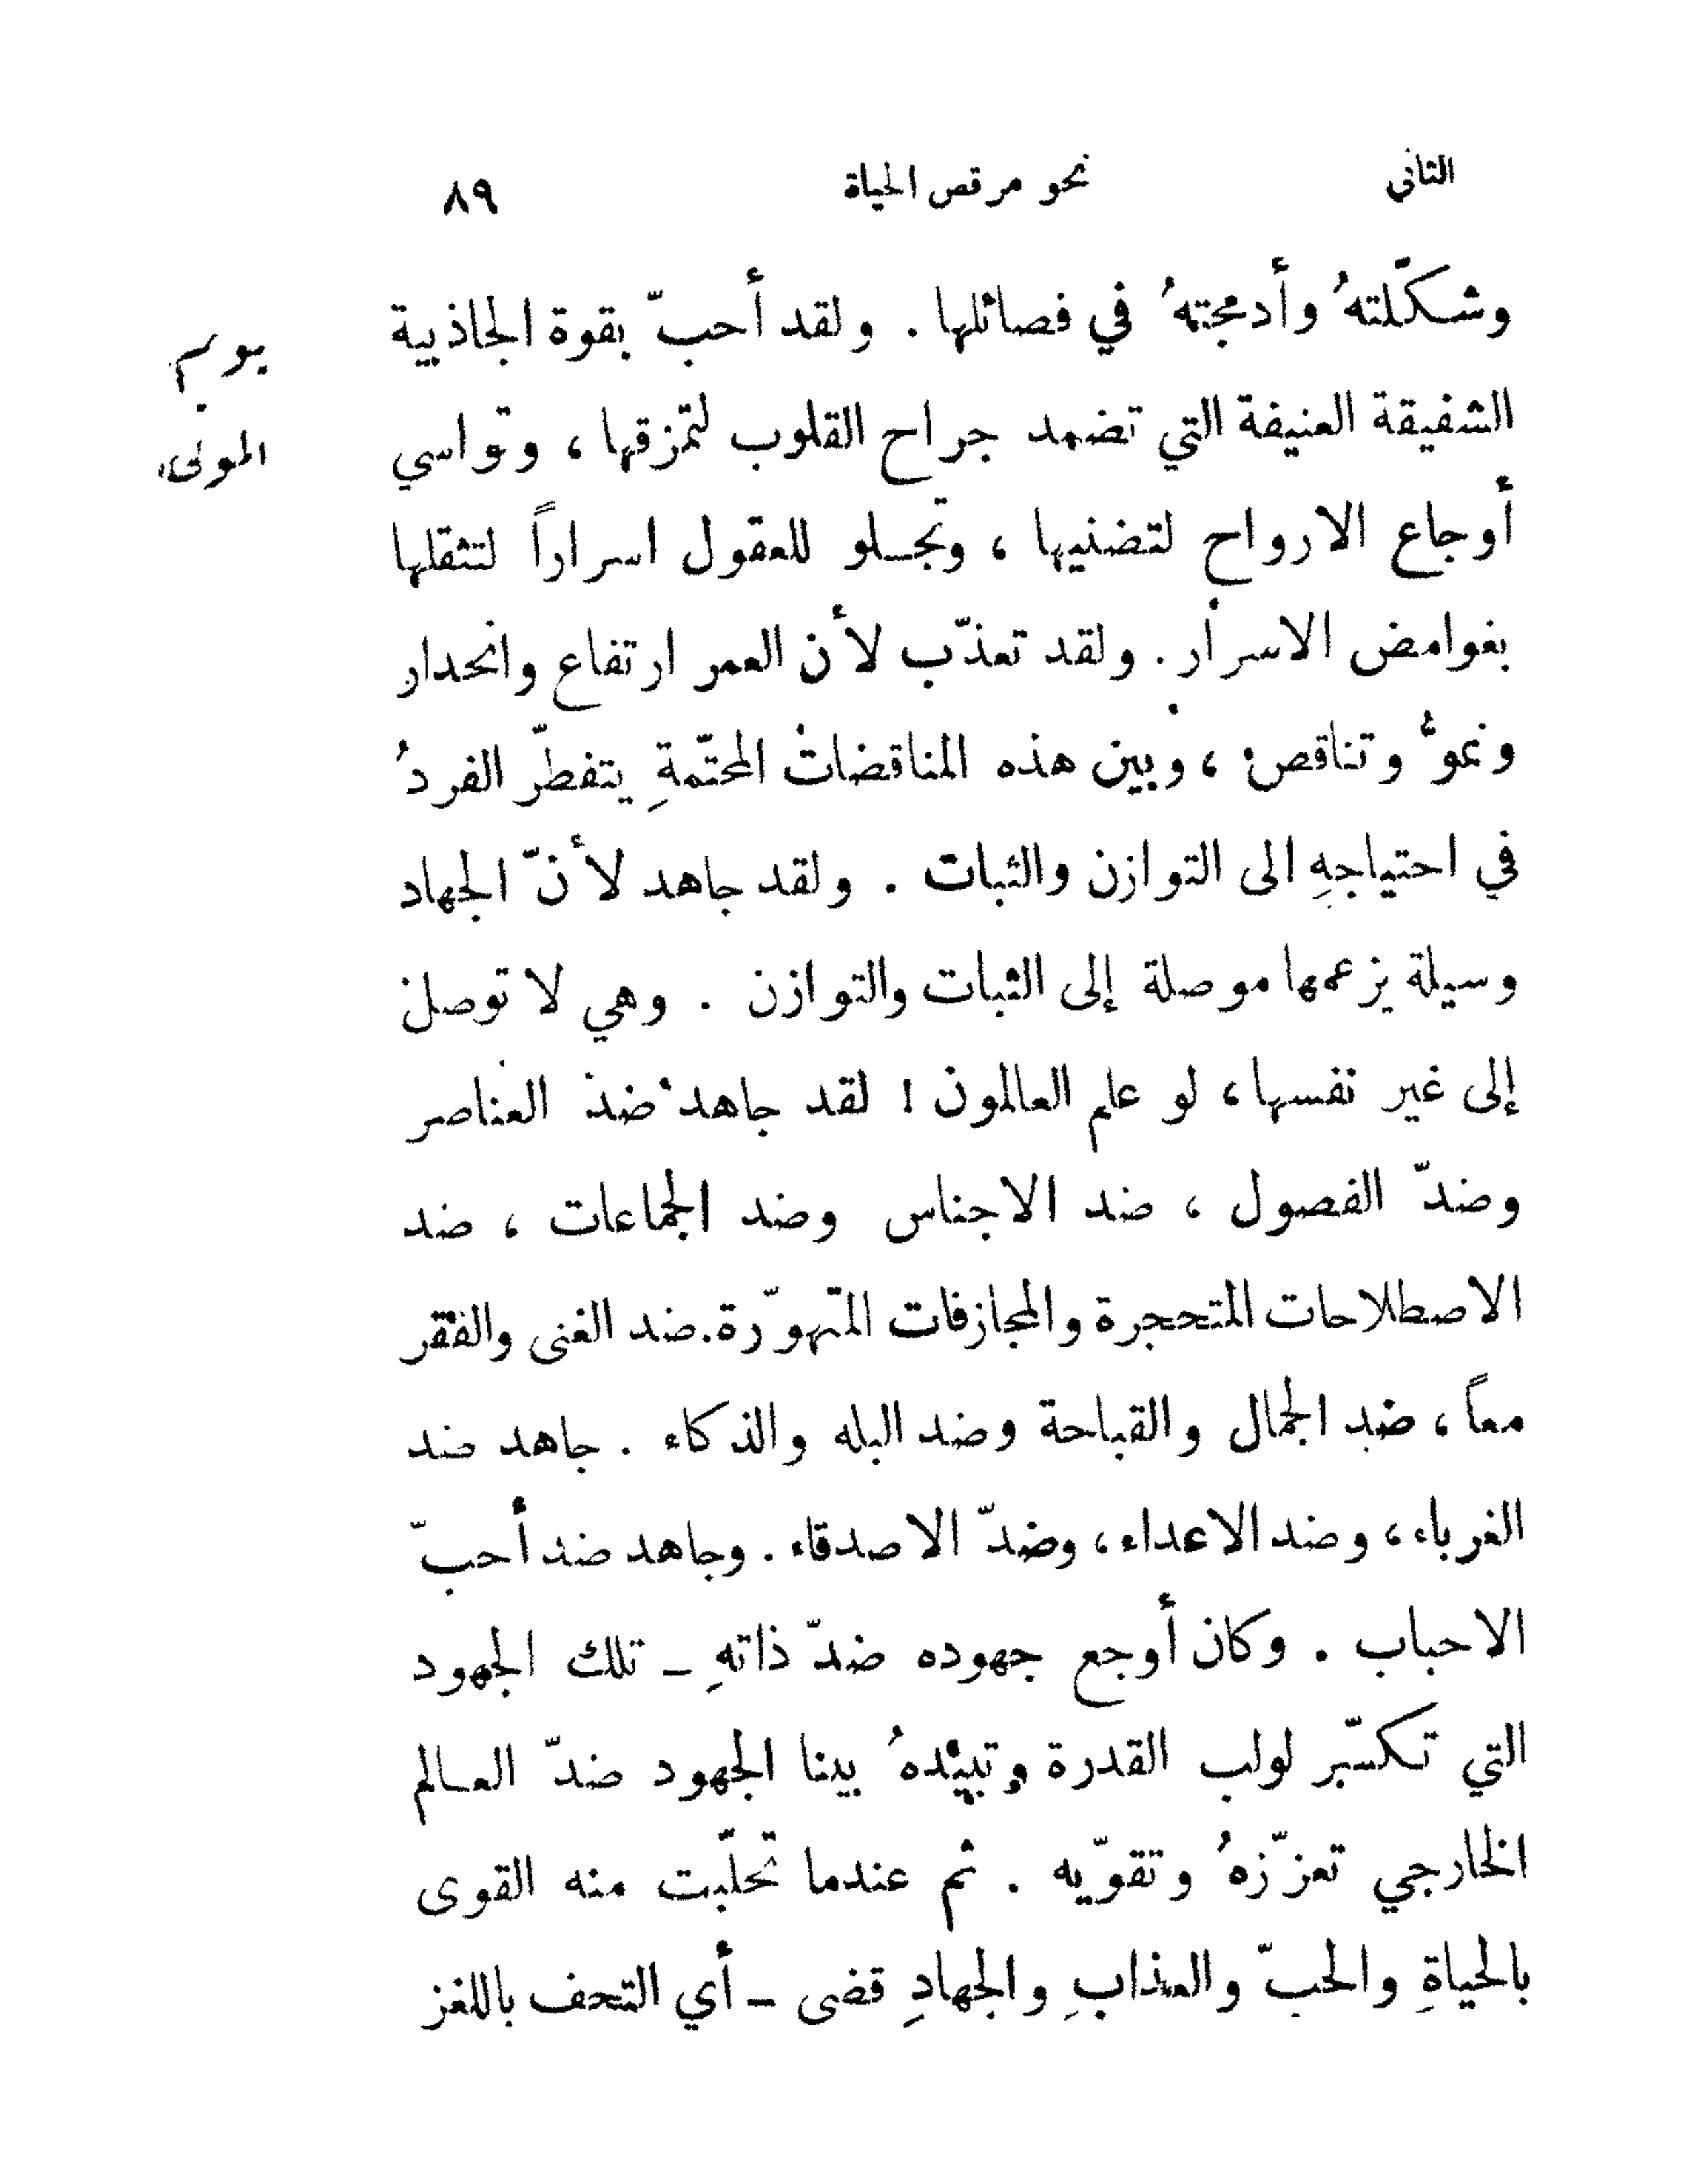 الثاني نحو مرقص الحياة ٨٩
وشكّلتهُ وأدمجتهُ في فصائلها . ولقد أحبّ بقوة الجاذبية
يوم
الشفيقة العنيفة التي تضمد جراح القلوب لتمزقها ، وتواسي
الموتى
أوجاع الارواح لتضنيها ، وتجلو للعقول اسراراً لتثقلها
بغوامض الاسرار . ولقد تعذّب لأن العمر ارتفاع وانحدار
ونموٌّ وتناقص ، وبين هذه المناقضات المحتّمةِ يتفطّر الفردُ
في احتياجهِ الى التوازن والثبات . ولقد جاهد لأنّ الجهاد
وسيلة يزعمها موصلة إلى الثبات والتوازن . وهي لا توصل
إلى غير نفسها ، لو علم العالمون ! لقد جاهد ضد العناصر
وضدّ الفصول ، ضد الاجناس وضد الجماعات ، ضد
الاصطلاحات المتحجرة والمجازفات المتهوّرة. ضد الغنى والفقر
معاً ، ضد الجمال والقباحة وضد البله والذكاء . جاهد ضد
الغرباء ، وضد الاعداء ، وضدّ الاصدقاء . وجاهد ضد أحبّ
الاحباب . وكان أوجع جهوده ضدّ ذاتهِ – تلك الجهود
التي تكسّر لولب القدرة وتبيدهُ بينا الجهود ضدّ العالم
الخارجي تعزّزهُ وتقوّيه . ثم عندما تحلّبت منه القوى
بالحياةِ والحبّ والعذابِ والجهادِ قضى – أي التحف باللغز